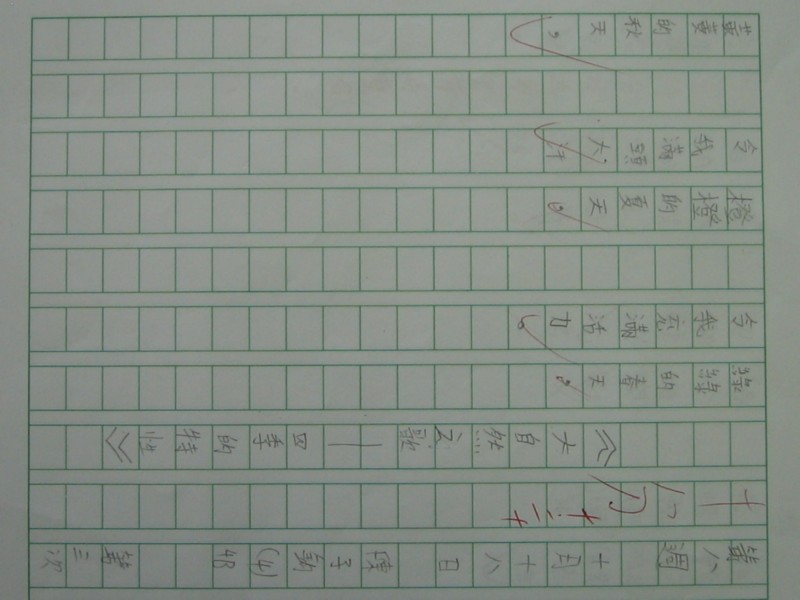 第八週 十月十八日 陳子勤(4) 4B 第三次
《大自然之歌——四季的特性》
綠綠的春天,
令我充滿活力。
橙橙的夏天,
令我滿頭大汗。
的秋天,